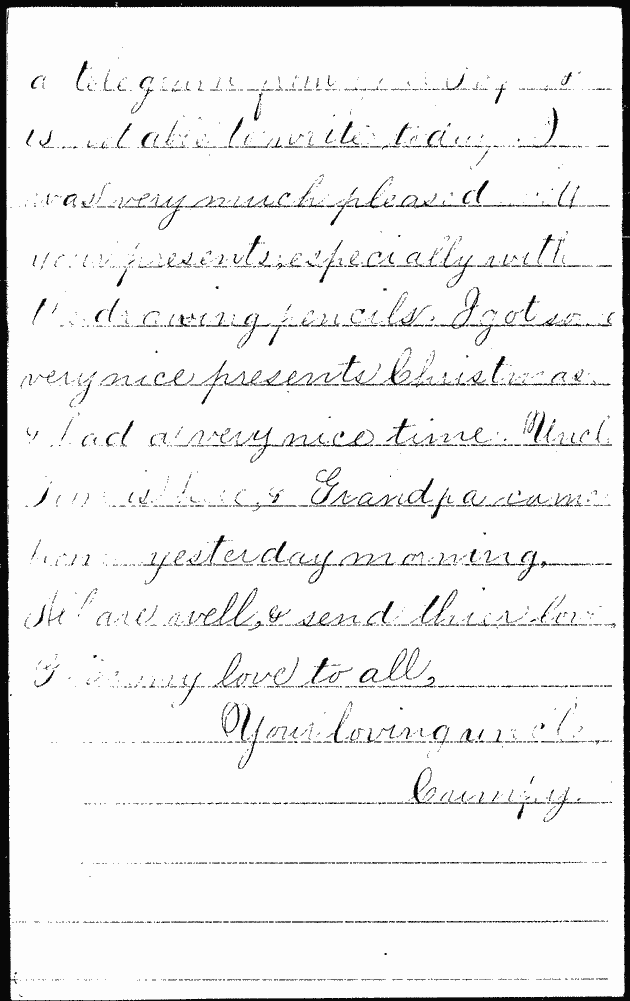 a telegram from
is not able to write today. I
was very much pleased with
your presents, especially with
the drawing pencils. I got some
very nice presents Christmas.
& had a very nice time. Uncle
is here, & Grandpa came
home yesterday morning.
All are well, & send thier love.
Give my love to all,
Your loving uncle.